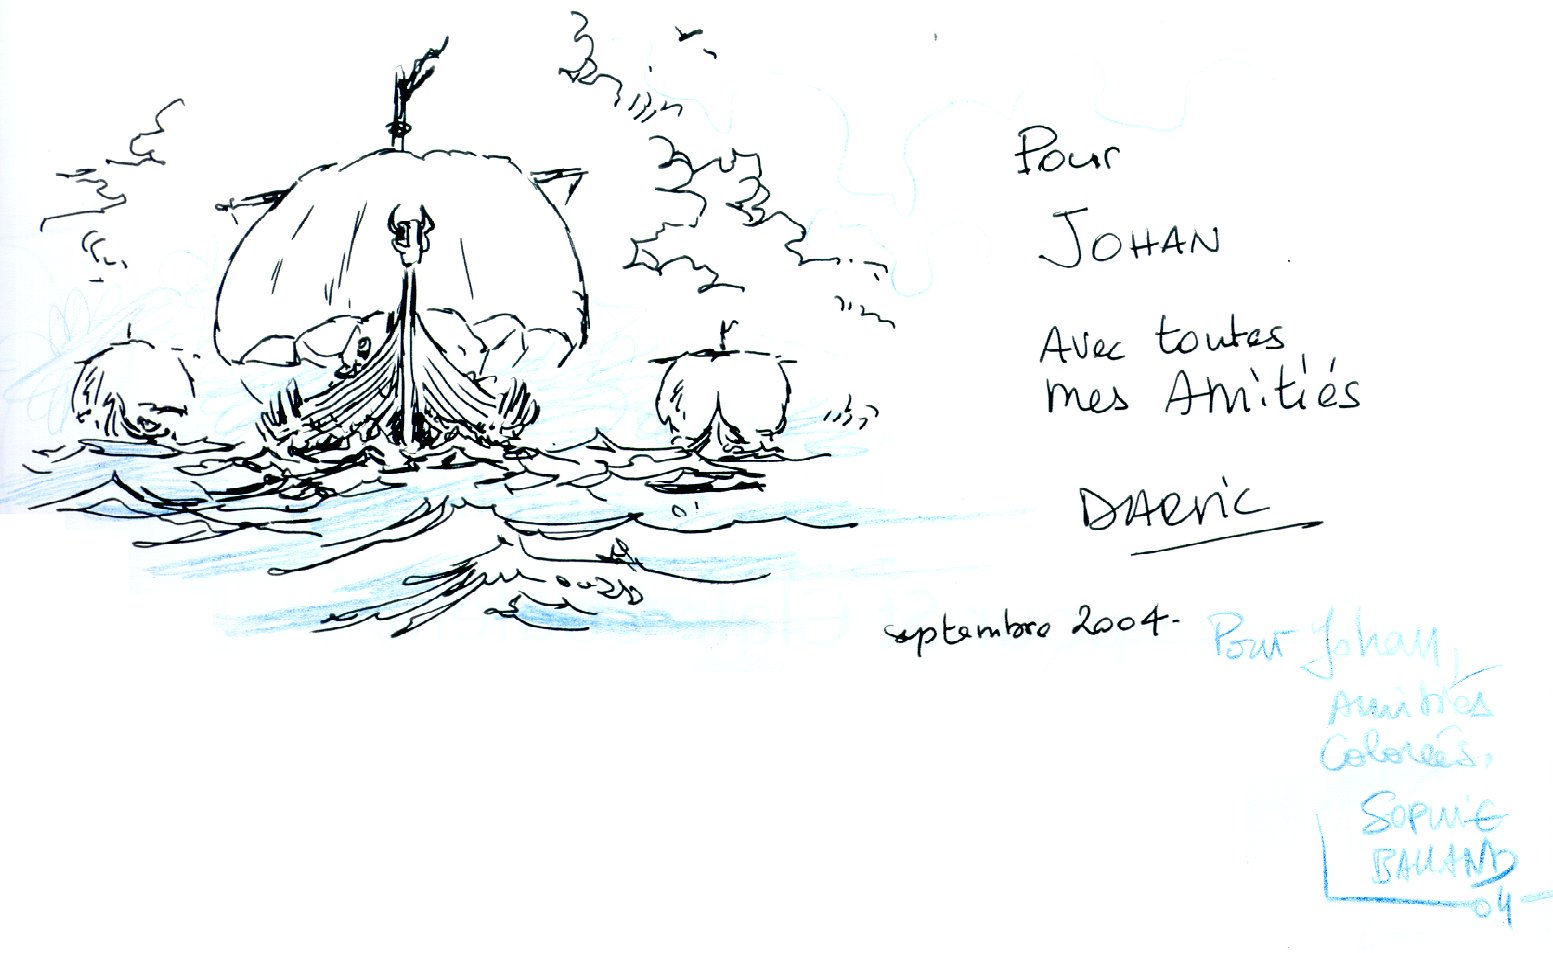 Pour
JOHAN
Avec toutes
mes Amitiés
DARVIC
septembre 2004-
Pour Johan,
Amitiés
Colorées,
SOPHIE
BALLAND
04-